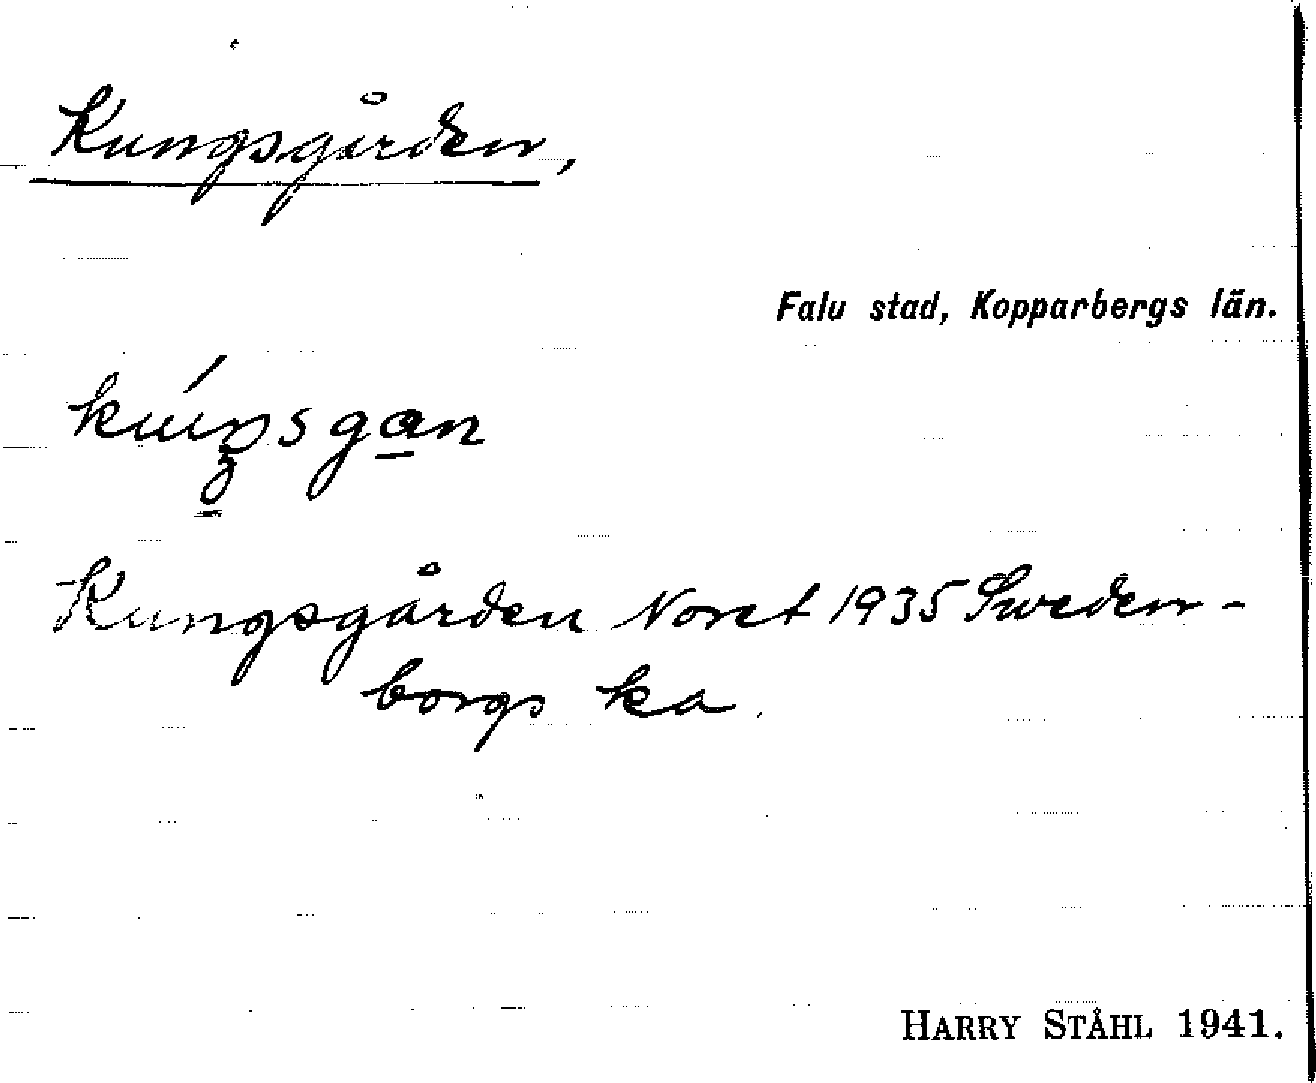 Kungsgården,
Falu stad, Kopparbergs län.
Kungsgården Noret 1935 Sweden-
borgs ka.
HARRY STÅHL 1941.